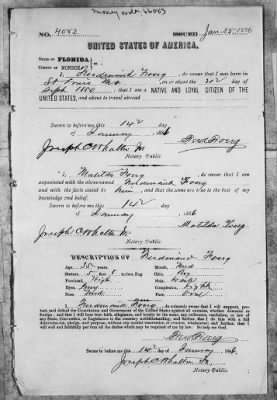 NO. 4082 ISSUED Jan. 25th 1886
UNITED STATES OF AMERICA.
STATE OF FLORIDA
COUNTY OF MONROE
I, Ferdinand Foerg, do swear that I was born in
St Louis Mo. on or about the day of
Sept 1850 that I am a NATIVE AND LOYAL CITIZEN OF THE
UNITED STATES, and about to travel abroad
Sworn to before me this 14th day
of January 1886
Fred Foerg
Joseph C Whalton Jr.
Notary Public
I, Matilda Foerg, do swear that I am
acquainted with the above named Ferdinand Foerg
and with the facts stated by him, and that the same are true to the best of my
knowledge and belief.
Sworn to before me this 14th day
of January 1886
Matilda Foerg
Joseph C Whalton Jr
Notary Public
DESCRIPTION OF Ferdinand Foerg
AGE: 35 years
MOUTH:
STATURE: 5 feet 8 in. Eng.
CHIN:
FOREHEAD: High
HAIR:
EYES:
COMPLEXION: Light
NOSE:
FACE: Oval
I, Ferdinand Foerg, do solemnly swear that I will support, pro-
tect and defend the Constitution and Government of the United States against all enemies, whether domestic
or foreign; and that I will bear true faith, allegiance, and loyalty to the same, any ordinance, resolution, or law of
any State, Convention, or Legislature to the contrary notwithstanding; and further, that I do this with a full
determination, pledge, and purpose, without any mental reservation or evasion whatsoever; and further, that I
will well and faithfully perform all the duties which may be required of me by law. So help me God.
Fred Foerg
Sworn to before me this 14th of January 1886
Joseph C Whalton Jr.
Notary Public